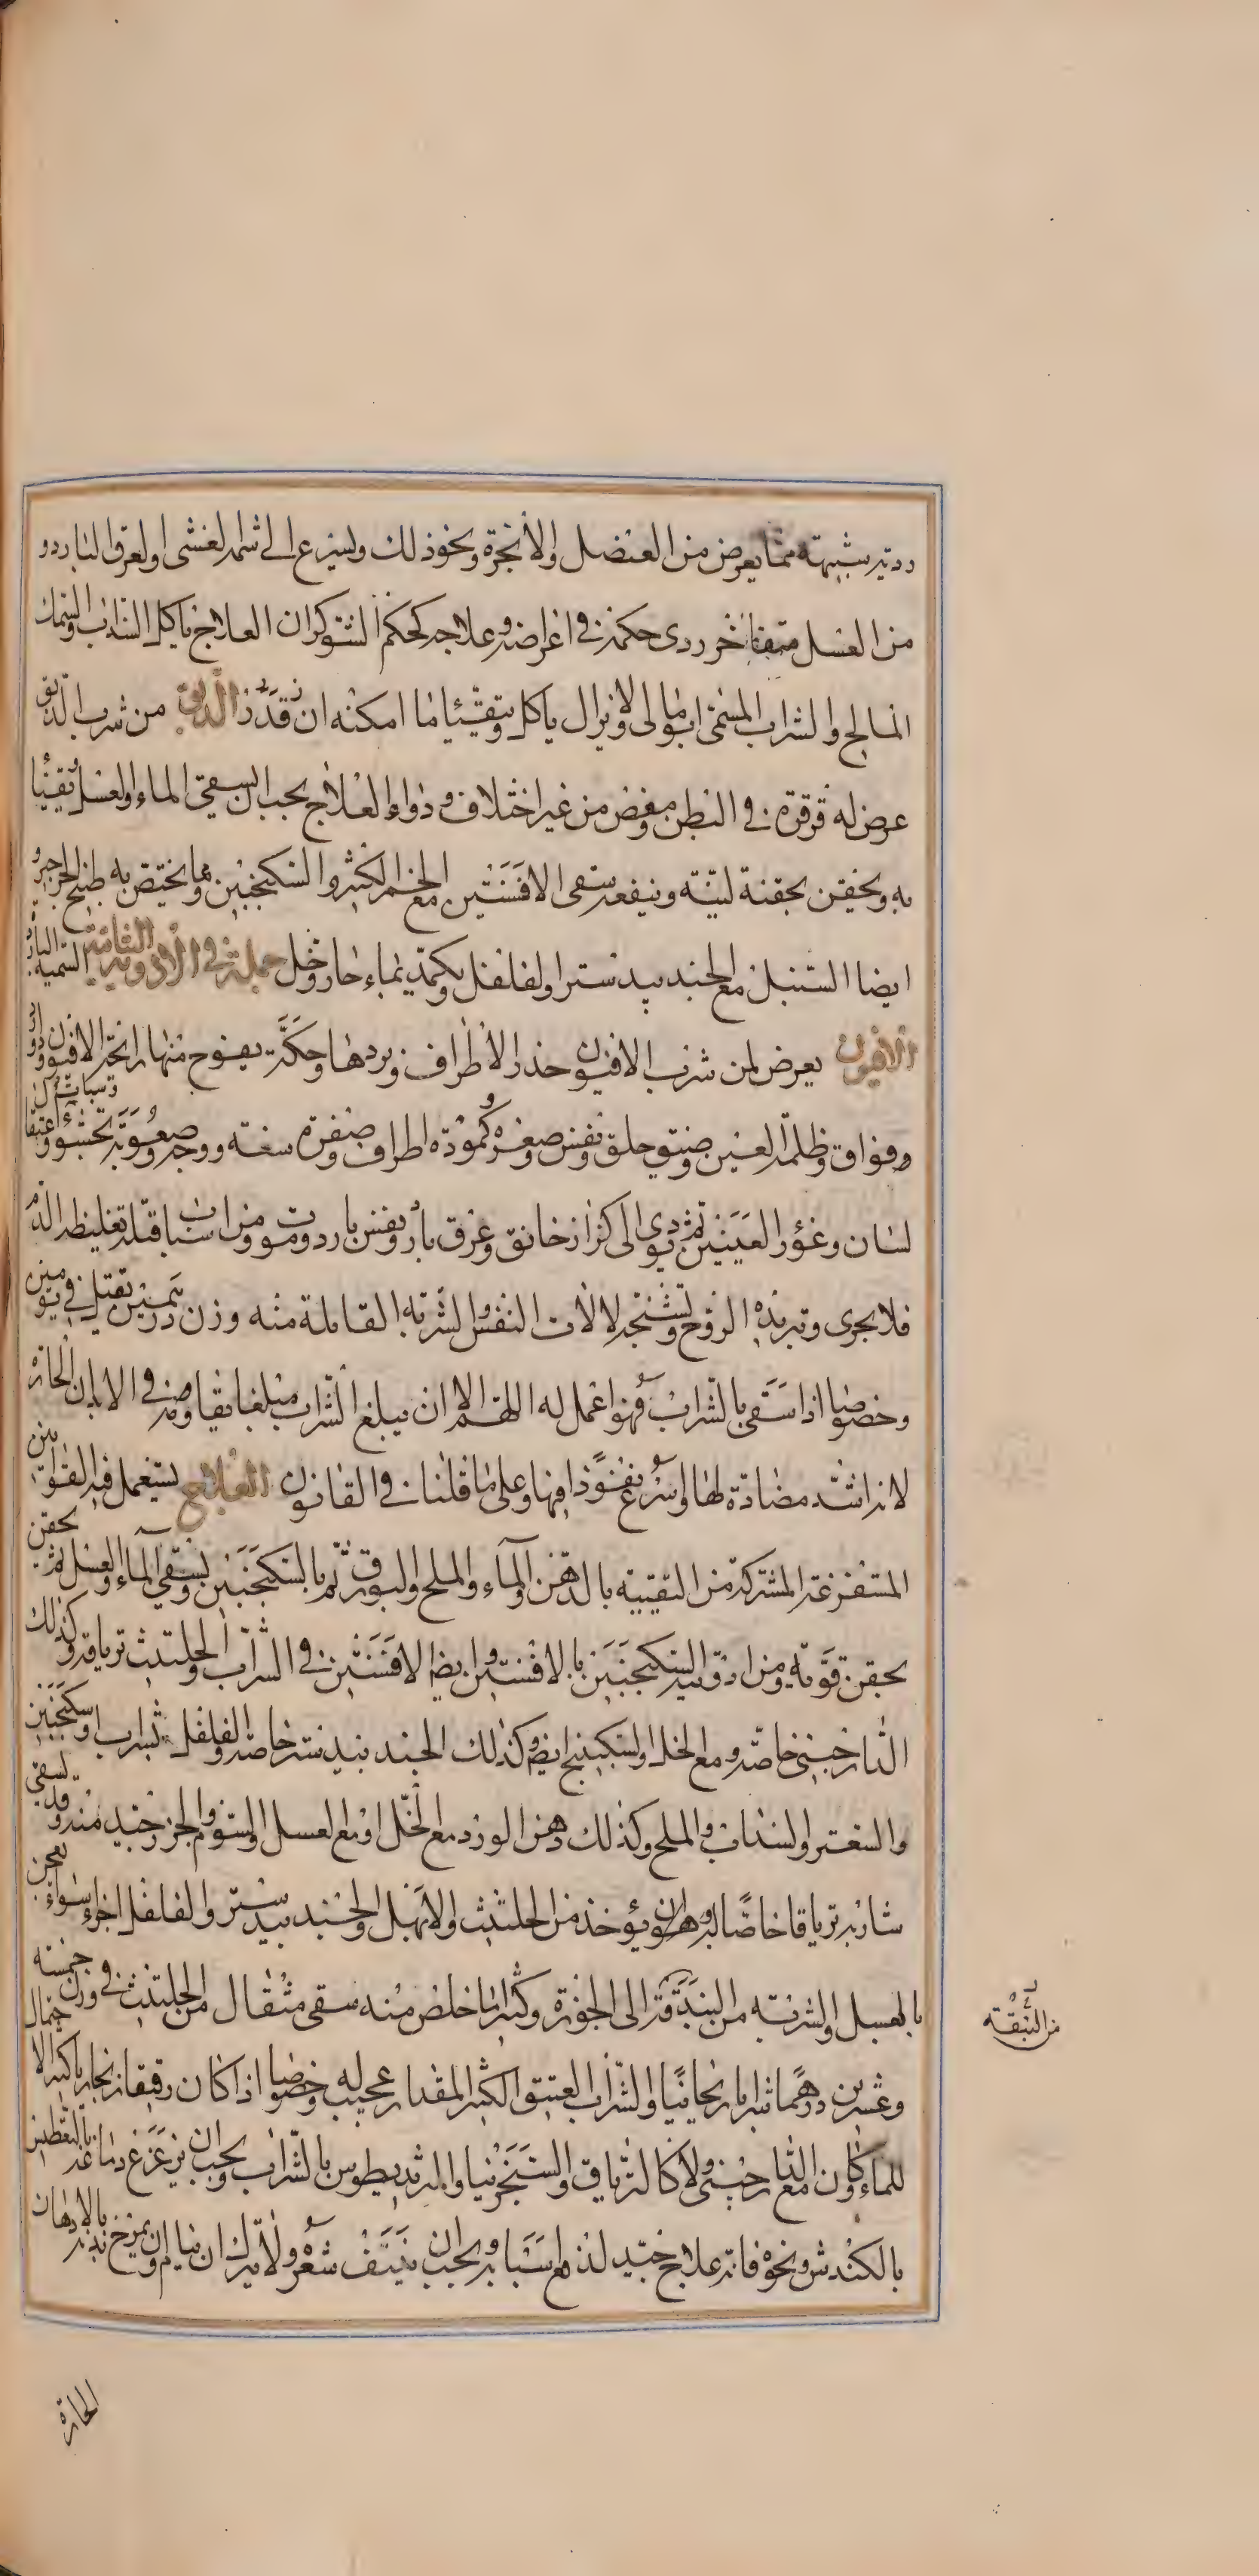 ردية شبيهة مما يعرض من العنصل والأنجرة ونحو ذلك ويسرع الى شامه الغشى والعرق البارد و
من العسل متقا اخر ردى حكمه فى اعراضه وعلاجه كحكم الشوكران العلاج ياكل السذاب والسمك
المالح والشراب المسمى ابومالى ولا يزال ياكل ويتقيا ما امكنه ان قدر الدبق من شرب الدبق
عرض له قرقرة فى البطن ومغص من غير اختلاف ودواء العلاج يجب ان يسقى الماء والعسل وتقيئا
به ويحقن بحقنة لينة وينفعه سقى الافسنتين مع الخمر الكثير والسكنجبين ومما يختص به طبيخ الجرجير و
ايضا السنبل مع الجندبيدستر والفلفل ويكمد بماء حار وخل جملة فى الادوية النباتية السمية الباردة
الافيون يعرض لمن شرب الافيون خدر الاطراف وبردها وحكة يفوح منها رائحة الافيون ودوار
وسبات
وفواق وظلمة العين وضيق حلق ونفس وصغره وكمودة اطراف وصفرة سعنة ووجه وصعوبة تجشؤ واعتقال
لسان وغؤر العينين ثم يودى الى كزاز خانق وعرق بارد ونفس بارد وموت ومن اسباب قتله تغليظه الدم
فلا يجرى وتبريده الروح وتشنجه لالات النفس والشربة القاتلة منه وزن درهمين تقتل فى يومين
وخصوصا اذا سقى بالشراب فهو اعمل له اللهم الا ان يبلغ الشراب مبلغا يقاومه فى الابدان الحارة
لانه اشد مضادة لها واسرع نفوذا فيها وعلى ما قلنا فى القانون العلاج يستعمل فيه القوانين
المستفرغة المشتركة من التقيية بالدهن والماء والملح والبورق ثم بالسكنجبين ويسقى الماء والعسل ثم يحقن
بحقن قوية ومن ادويته السكنجبين بالافسنتين وايضا الافسنتين فى الشراب والحلتيت ترياقه وكذلك
الدارصينى خاصة ومع الخل والسكبينج ايضا وكذلك الجندبيدستر خاصة والفلفل بشراب اوسكنجبين
والسعتر والسذاب والملح وكذلك دهن الورد مع الخل او مع العسل والثوم والجوز جيد منه وقد يسقى
شاربه ترياقا خاصا له وهو ان يؤخذ من الحلتيت والابهل والجندبيدستر والفلفل اجزاء سواء يعجن
بالعسل والشربة من البندقة الى الجوزة وكثيرا ما خلص منه سقى مثقال من الحلتيت فى وزن خمسة
وعشرين درهما شرابا ريحانيا والشراب العتيق الكثير المقدار عجيب له وخصوصا اذا كان رقيقا ريحانيا كثير الاحتمال
للماء وكان مع الدارصينى ولا كالترياق والسنجرنيا والمثروديطوس بالشراب ويجب ان يزعزع دماغه بالتعطيس
بالكندش ونحوه فانه علاج جيد لدفع اسبابه ويجب ان ينتف شعره ولا يترك ان ينام وان يمرخ بدنه بالادهان
من النبقة
الحارة